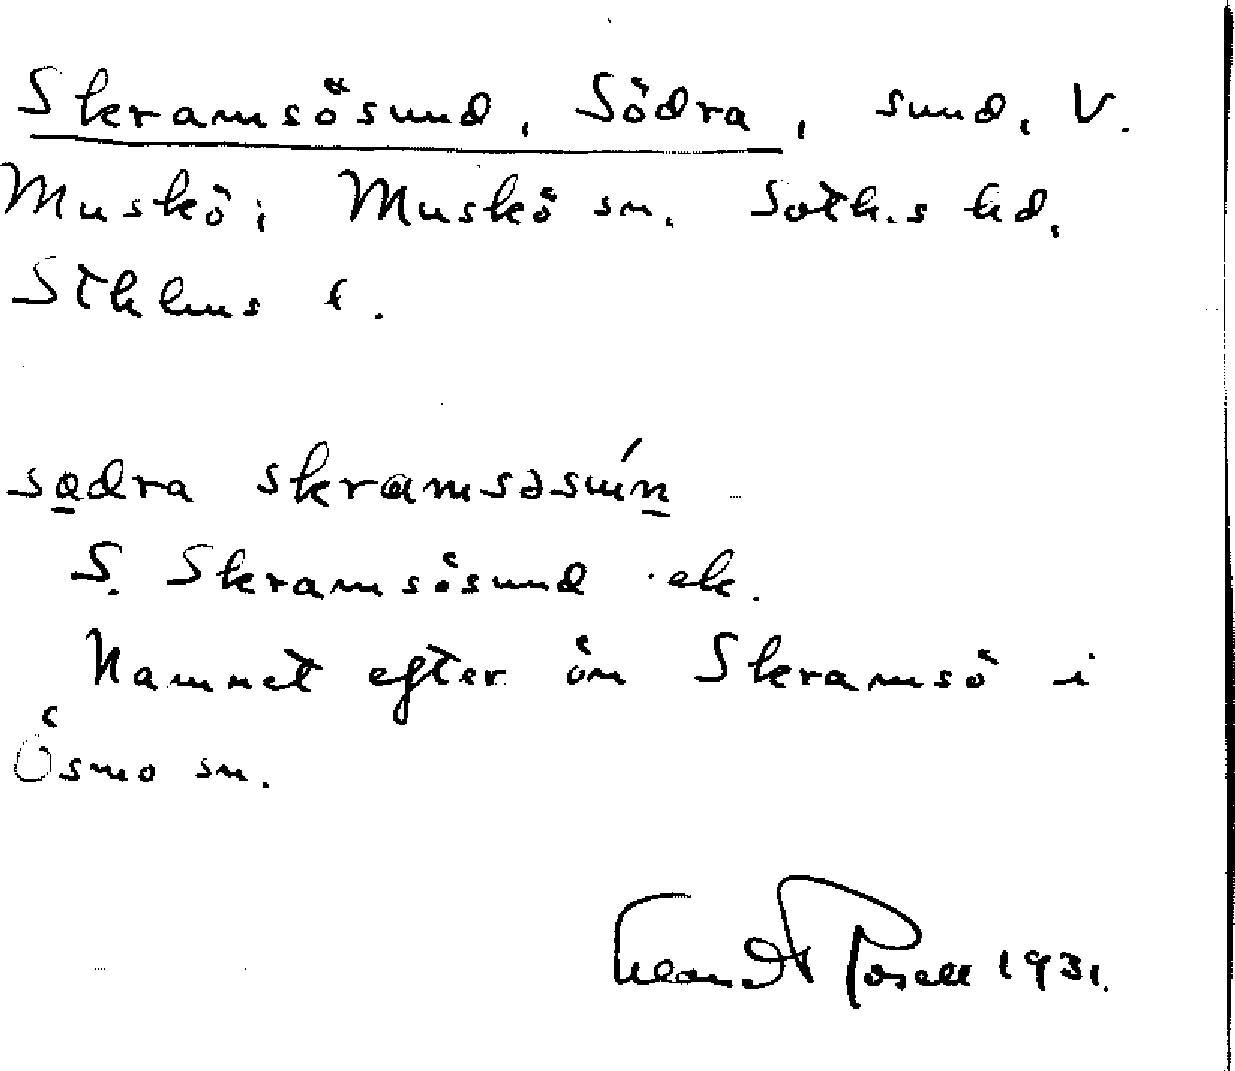 Skramsösund, Södra, sund, V.
Muskö; Muskö sn. Soth.s hd.
Sthlms l.
sødra skramsøsuń
S. Skramsösund ek.
Namnet efter ön Skramsö i
Ösmo sn.
1931.